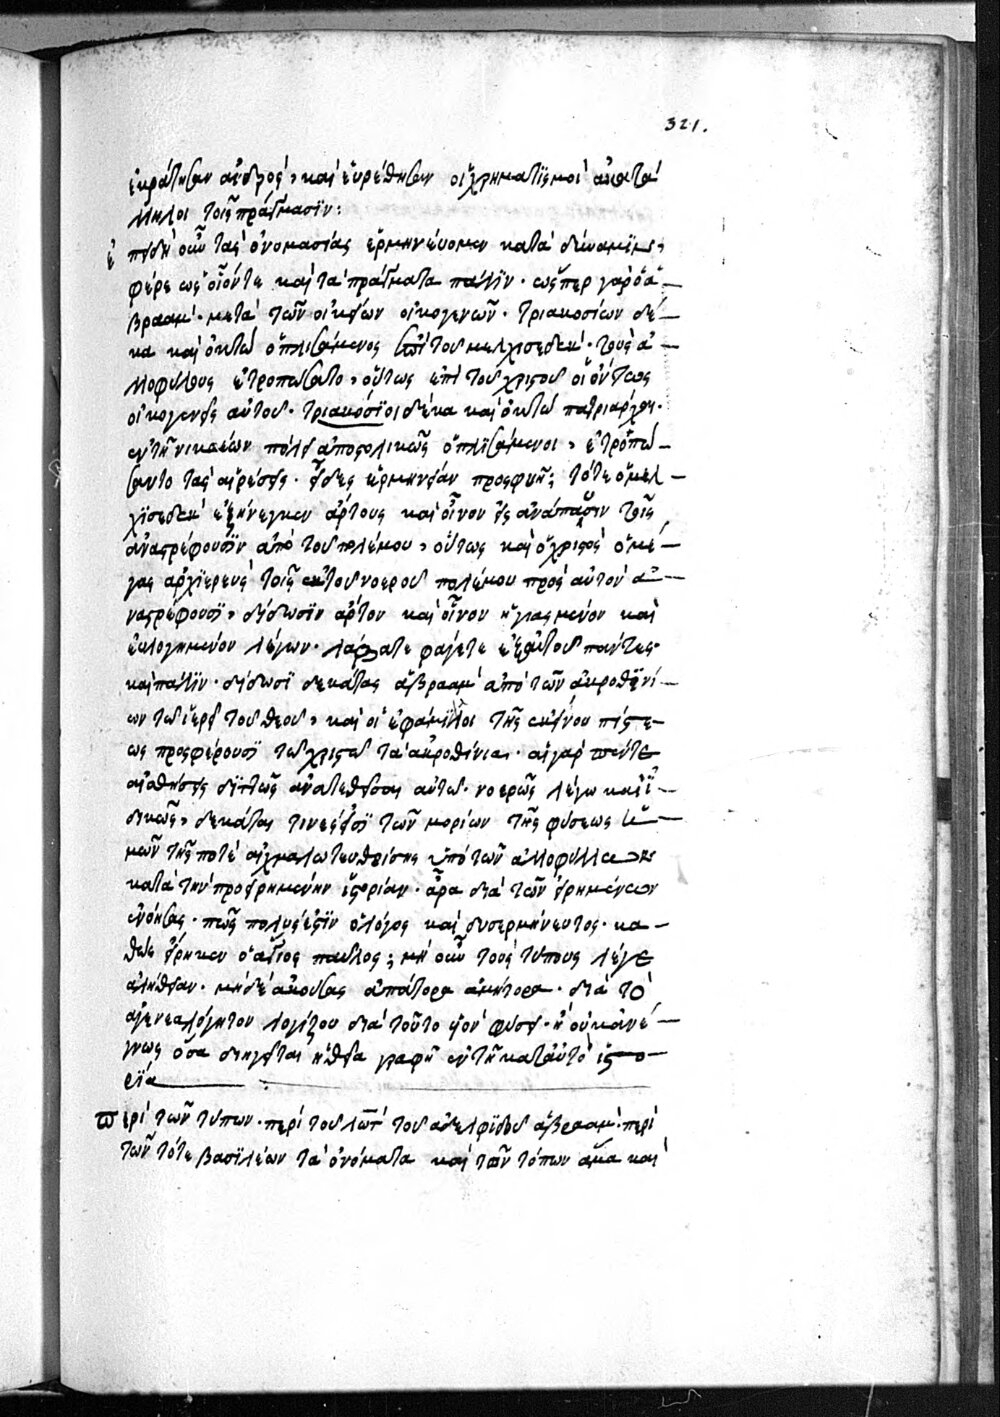 321.
ἐκράτησαν ἀνδρὸς, καὶ εὑρέθησαν οἱ χρηματϊσμοὶ ἀκατά
λληλοι τοῖς πράγμασϊν:
ἐπειδὴ οὖν τὰς ὀνομασίας ἑρμηνεύομεν κατὰ δύναμϊν,
φέρε ὡς οἷόντε καὶ τὰ πράγματα πάλϊν. ὥσπερ γὰρ ὁ ἀ
βραὰμ. μετὰ τῶν οἰκείων οἰκογενῶν. τριακοσίων δέ
κα καὶ ὀκτὼ ὁπλισάμενος ἐπὶ τοῦ μελχισεδὲκ. τοὺς ἀ
λλοφύλους ἐτροπώσατο, οὕτως ἐπὶ τοῦ χριστοῦ οἱ ὄντως
οἰκογενεῖς αὐτοῦ. τριακόσϊοι δέκα καὶ ὀκτὼ πατριάρχαι.
ἐν τῇ νικαέων πόλει ἀποστολικῶς ὁπλϊσάμενοι, ἐτροπώ
σαντο τὰς αἱρέσεις. τότε ὁ μελ
χϊσεδὲκ ἐξήνεγκεν ἄρτους καὶ οἶνον εἰς ἀνάπαυσιν τοῖς
ἀναστρέφουσϊν ἀπὸ τοῦ πολέμου, οὕτως καὶ ὁ χριστὸς ὁ μέ
γας ἀρχϊερεὺς τοῖς ἐκ τοῦ νοεροῦ πολέμου πρὸς αὐτὸν ἀ
ναστρέφουσϊ, δίδωσϊν ἄρτον καὶ οἶνον ἡγιασμένον καὶ
εὐλογημένον λέγων. λάβετε φάγετε ἐξ αὐτοῦ πάντες.
καὶ πάλϊν. δίδωσϊ δεκάτας ἀβραὰμ ἀπὸ τῶν ἀκροθϊνί
ων τῷ ἱερεῖ τοῦ θεοῦ, καὶ οἱ ἐφάμϊλλοι τῆς ἐκείνου πίστε
ως προσφέρουσϊ τῷ χριστῷ τὰ ἀκροθίνια. αἱ γὰρ πέντε
αἰσθήσεις διττῶς ἀνατεθεῖσαι αὐτῷ. νοερῶς λέγω καὶ ἰ
δικῶς, δεκάται τινές εἰσϊ τῶν μορίων τῆς φύσεως ἡ
μῶν τῆς ποτὲ αἰχμαλωτευθείσης ὑπὸ τῶν ἀλλοφύλλων
κατὰ τὴν προειρημένην ἱστορίαν. ἆρα διὰ τῶν εἰρημένων
ἐνόησας. πῶς πολύς ἐστϊν ὁ λόγος καὶ δυσερμήνευτος. κα
θὼς εἴρηκεν ὁ ἅγιος παῦλος; μὴ οὖν τοὺς τύπους λέγε
ἀλήθειαν. μηδὲ ἀκούσας ἀπάτορα ἀμήτορα. διὰ τὸ
ἀγενεαλόγητον λογίζου διὰ τοῦτο υἱὸν φύσει. ἢ οὐκ ἀνέ
γνως ὅσα διηγεῖται ἡ θεία γραφὴ ἐν τῇ κατ' αὐτὸ ἱστο
ρϊα
περὶ τῶν τύπων. περὶ τοῦ λὼτ τοῦ ἀδελφϊδοῦ ἀβραάμ. περὶ
τῶν τότε βασϊλέων τὰ ὀνόματα καὶ τῶν τόπων ἅμα καὶ